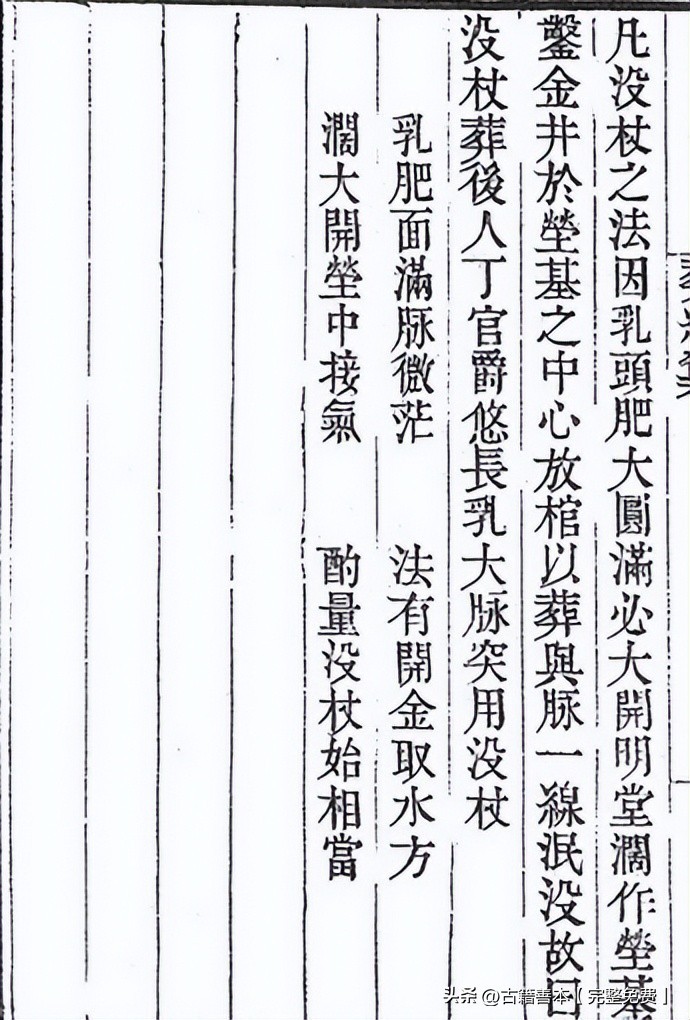 凡没杖之法因乳頭肥大圓滿必大開明堂濶作塋基
鑿金井於塋基之中心放棺以葬與脉一線泯没故曰
没杖葬後人丁官爵悠長乳大脉突用没杖
乳肥面滿脉微茫　法有開金取水方
濶大開塋中接氣　酌量没杖始相當
头条 @古籍善本【完整免费】